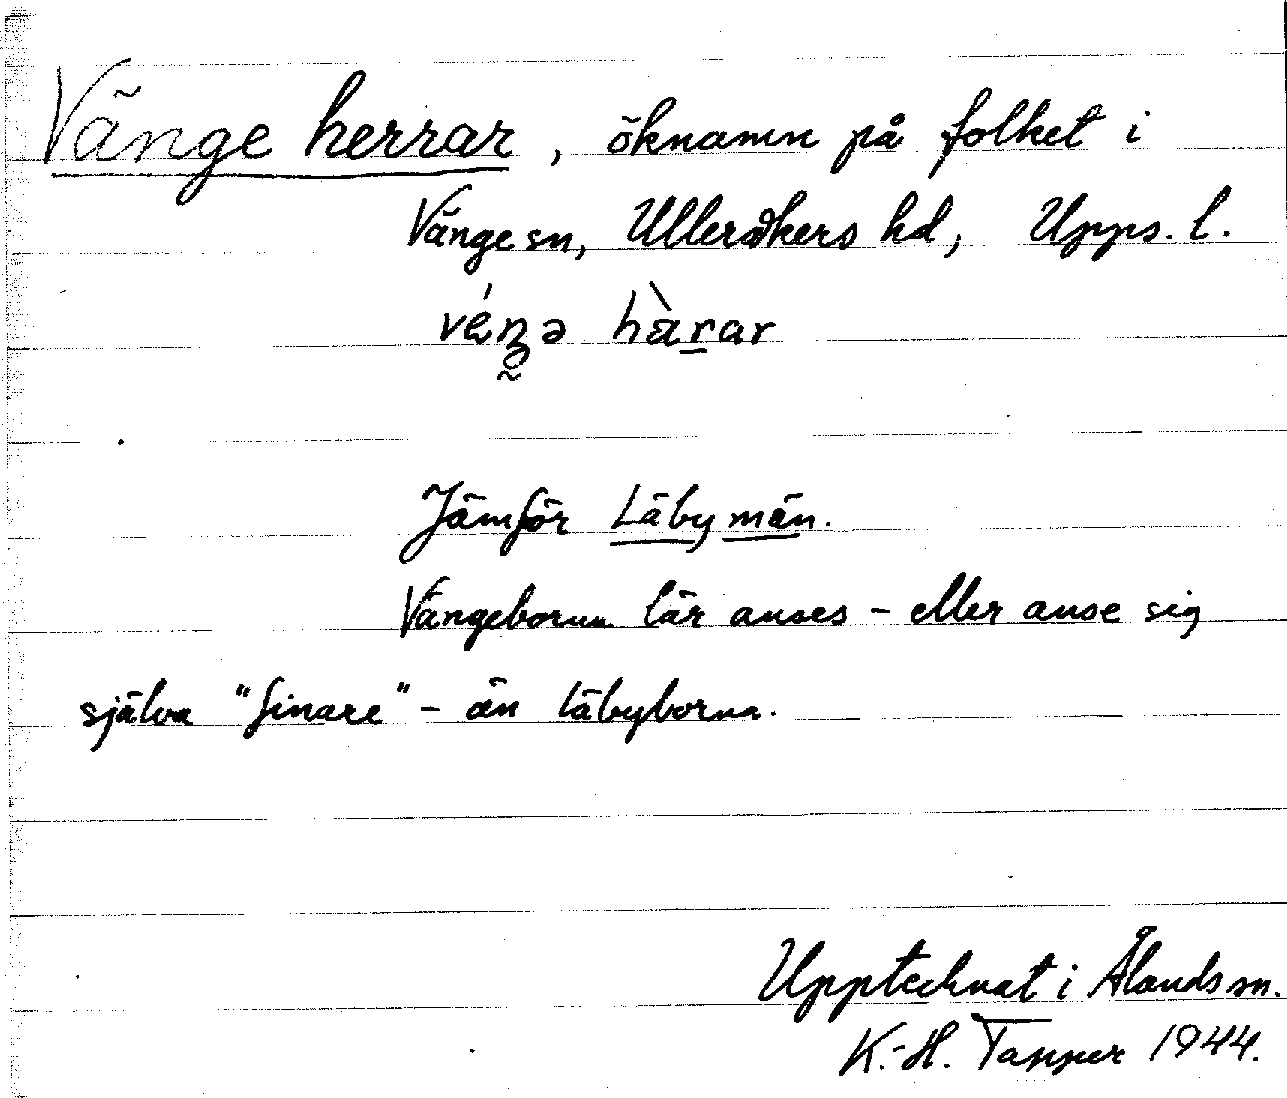 Vänge herrar, öknamn på folket i
Vänge sn, Ulleråkers hd, Upps. l.
hàrar
Jämför Läby män.
Vängeborna lär anses - eller anse sig
själva "finare" - än Läbyborna.
Upptecknat i Ålands sn.
K.-H. Tapper 1944.